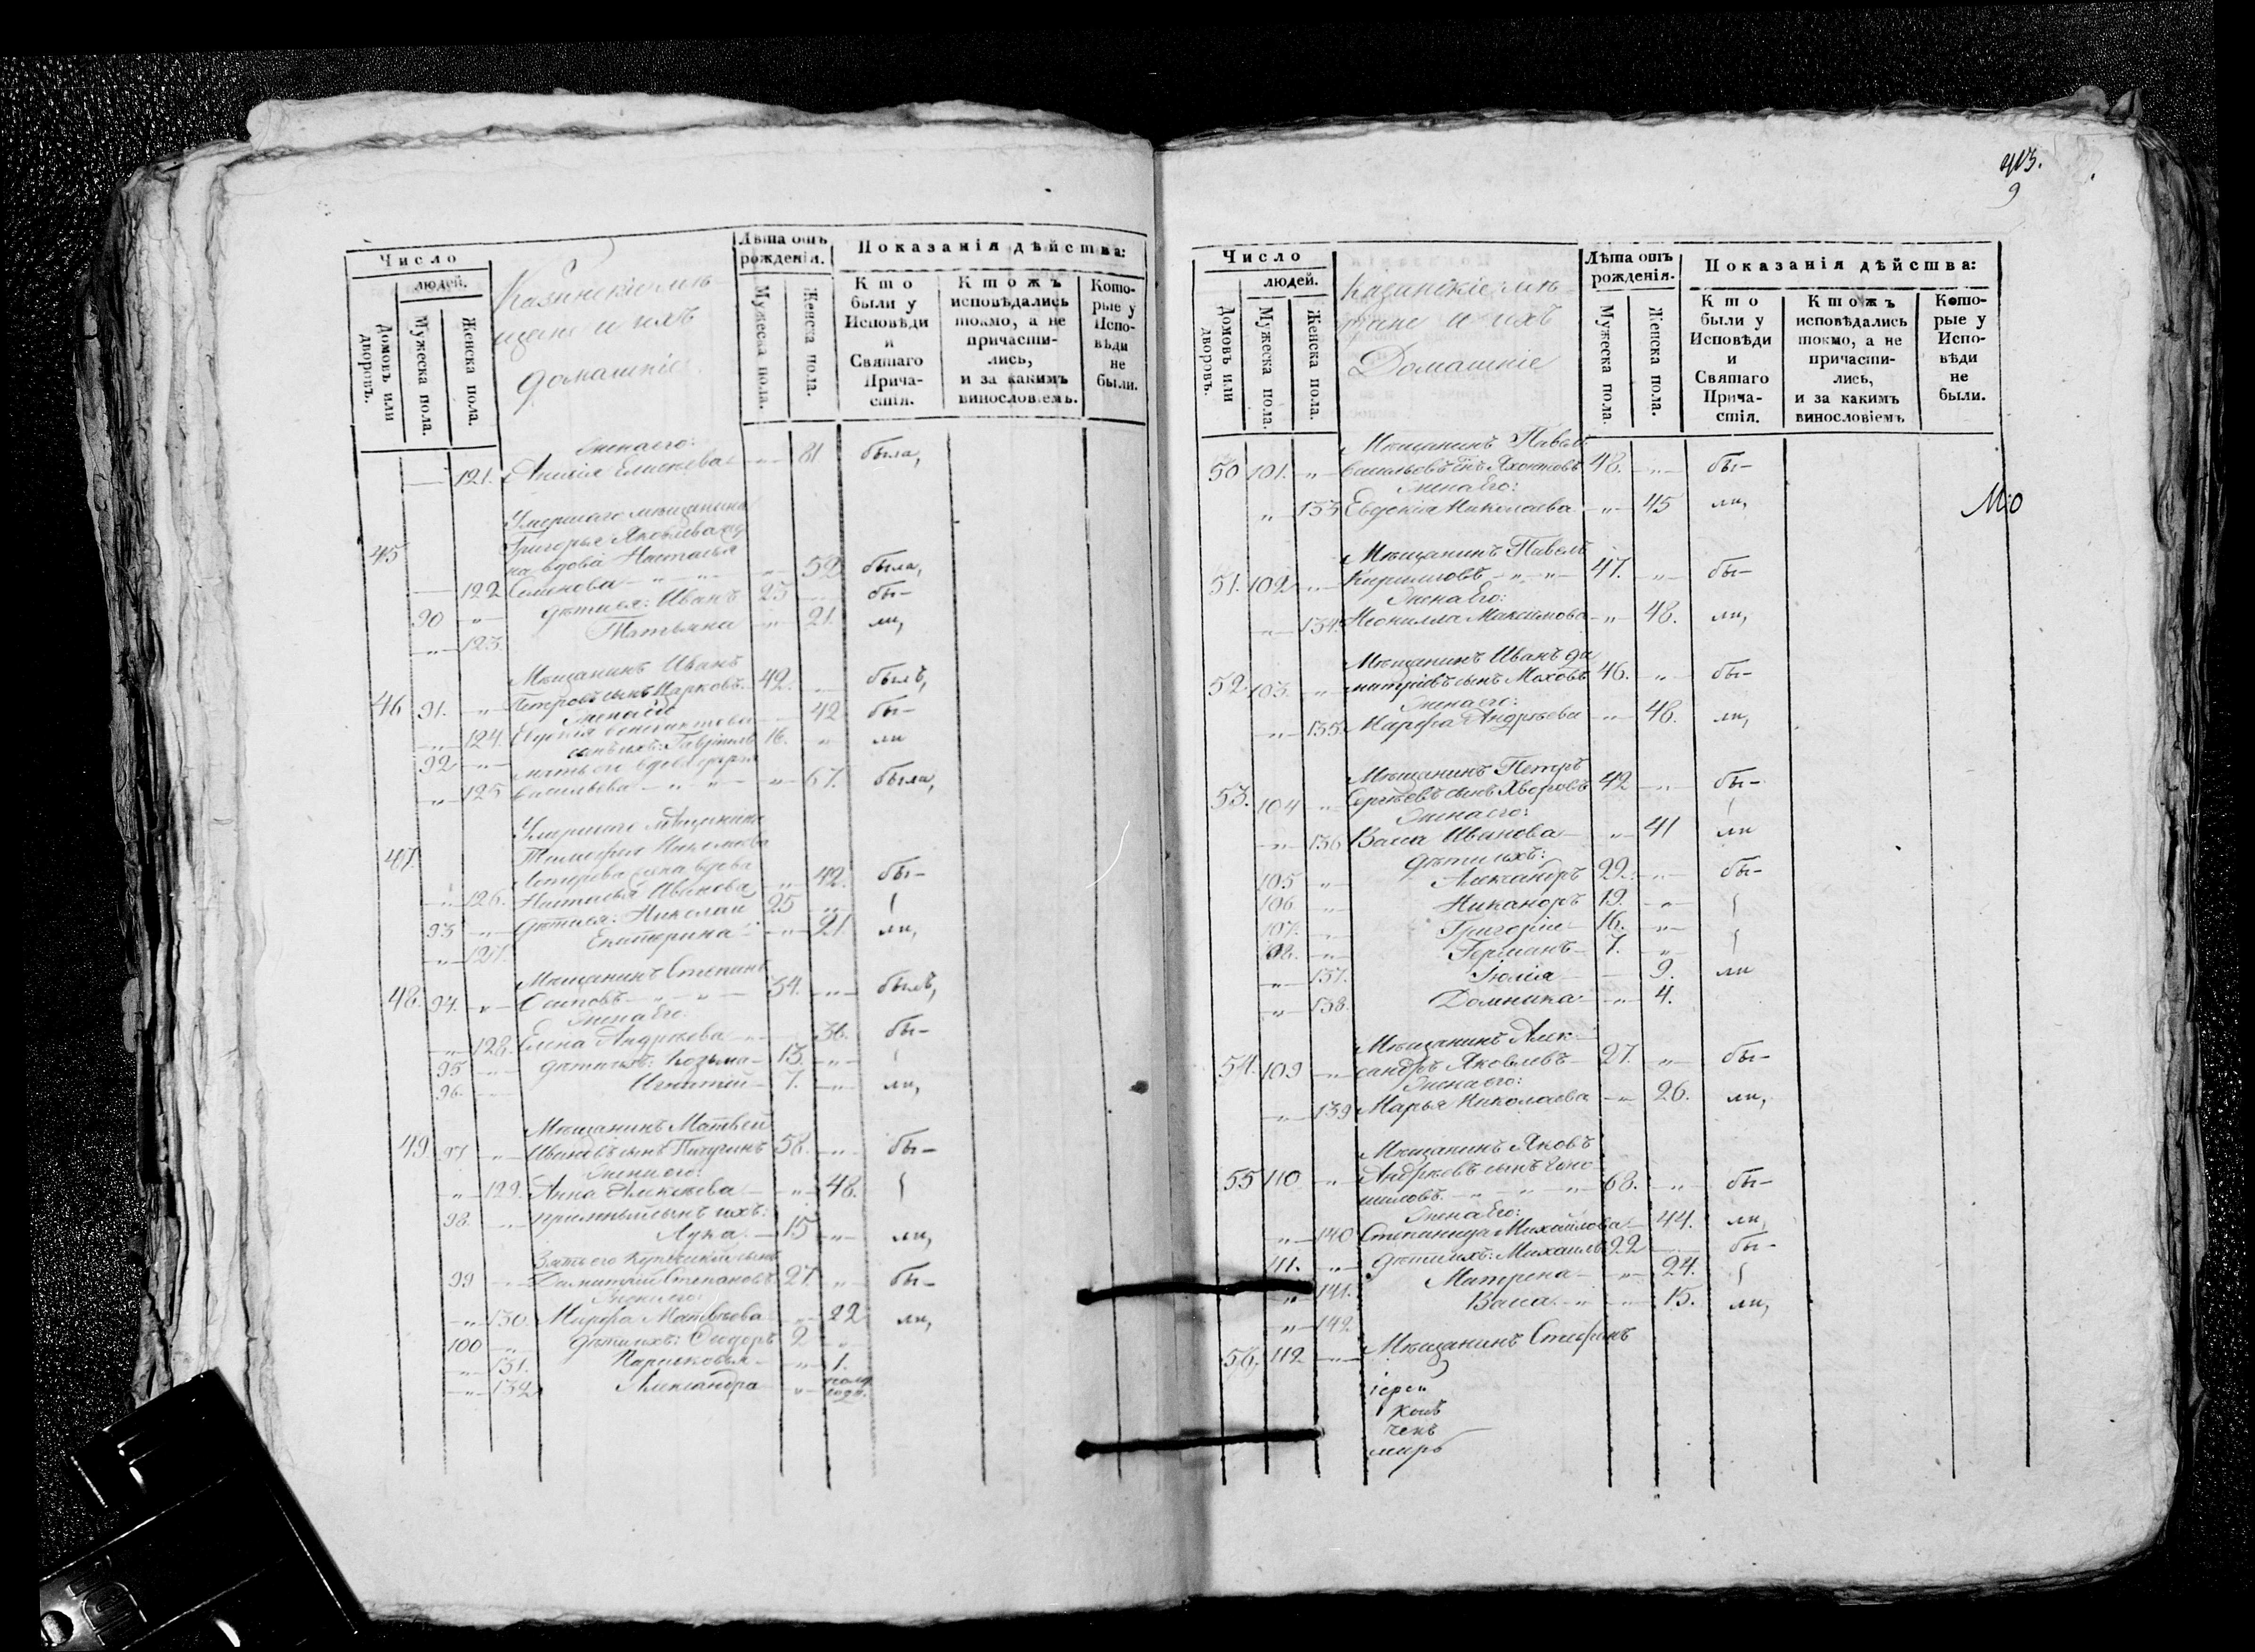 Число
людей.
Домовъ или дворовъ.
Мужеска пола.
Женска пола.
Казанскіе мѣ-
щане и ихъ
домашніе
Лѣта отъ рожденія.
Мужеска пола.
Женска пола.
Показанія дѣйства:
Кто были у Исповѣди и Святаго Причастія.
Ктожъ исповѣдались токмо, а не причасти-лись, и за какимъ винословіемъ.
Кото-рые у Испо-вѣди не были.
жена его:
121. Елисѣева „ 81 была,
Умершаго мѣщанина
45 Григорья Яковлева
на вдова Настасья
122 Семенова „ „ 52 была,
90 „ дѣти ея: Иванъ 25 бы-
„ 123. Татьяна „ 21. ли,
Мѣщанинъ Иванъ
46 91. „ Петровъ сынъ Марковъ 42. былъ,
жена его
124. Евдокія 42 бы-
92 „ сынъ ихъ: Гавріилъ 16. „ ли
мать ея вдова Дарья
„ 125 Васильева „ „ 67. была,
Умершаго мѣщанина
47. Тимофея Николаева
вдова
126. Настасья Иванова „ 42. бы-
93 „ дѣти ея: Николай 25 „
„ 127. Екатерина „ 21. ли,
Мѣщанинъ Степанъ
48. 94. „ Осиповъ „ „ 34. „ былъ,
жена его
„ 128. Елена Андреева „ 36. бы-
95 дѣти ихъ: Козьма 13. „
96. Игнатій 7. ли,
Мѣщанинъ Матвей
49. 97 „ Ивановъ сынъ Пичугинъ 58. „ бы-
жена его:
„ 129. Анна Алексѣева „ 48.
98. „ пріемный сынъ ихъ:
Лука 15 „ ли,
Зять его
99 Димитрій Степановъ 27. „ бы-
жена его:
„ 130. Марфа Матвѣева „ 22 ли,
100 „ дѣти ихъ: Ѳедоръ 2 „
„ 131. Парасковья „ 1.
„ 132 Александра „ полгода.
403.
9
Число
людей.
Домовъ или дворовъ.
Мужеска пола.
Женска пола.
Казанскіе мѣ-
щане и ихъ
Домашніе
Лѣта отъ рожденія.
Мужеска пола.
Женска пола.
Показанія дѣйства:
Кто были у Исповѣди и Святаго Прича-стія.
Ктожъ исповѣдались токмо, а не причасти-лись, и за какимъ винословіемъ
Кото-рые у Испо-вѣди не были.
Мѣщанинъ Павелъ
50 101. „ Васильевъ сынъ Яхонтовъ 48. „ бы-
жена его:
„ 133 Евдокія Николаева „ 45 ли,
Мѣщанинъ Павелъ
51. 102 „ Кириловъ „ „ 47. „ бы-
жена его:
„ 134. Неонилла Максимова „ 48. ли,
Мѣщанинъ Иванъ Ди
52. 103. „ митріевъ сынъ Моховъ 46. „ бы-
жена его:
„ 135. Марфа Андреева „ 48. ли,
Мѣщанинъ Петръ
53. 104 „ Сергѣевъ сынъ Хворовъ 42 „ бы-
жена его:
„ 136 Васса Иванова „ 41 ли
дѣти ихъ:
105 „ Александръ 22. „ бы-
106 „ Никаноръ 19. „
107. „ Григорій 16. „
108. „ Германъ 7. „
„ 137. Іюлія 9. ли
„ 138. Домника „ 4.
Мѣщанинъ Алек-
54. 109 „ сандръ Яковлевъ 27. „ бы-
жена его:
„ 139 Марья Николаева „ 26. ли,
Мѣщанинъ Яковъ
55 110 „ Андреевъ сынъ
шиловъ „ „ „ 68. „ бы-
жена его:
„ 140 Степанида Михайлова 44. ли,
111. „ дѣти ихъ: Михаилъ 22 бы-
„ 141. Матрена „ 24.
„ 142 Васса „ „ 15. ли,
56. 112 Мѣщанинъ Стефанъ
іерей